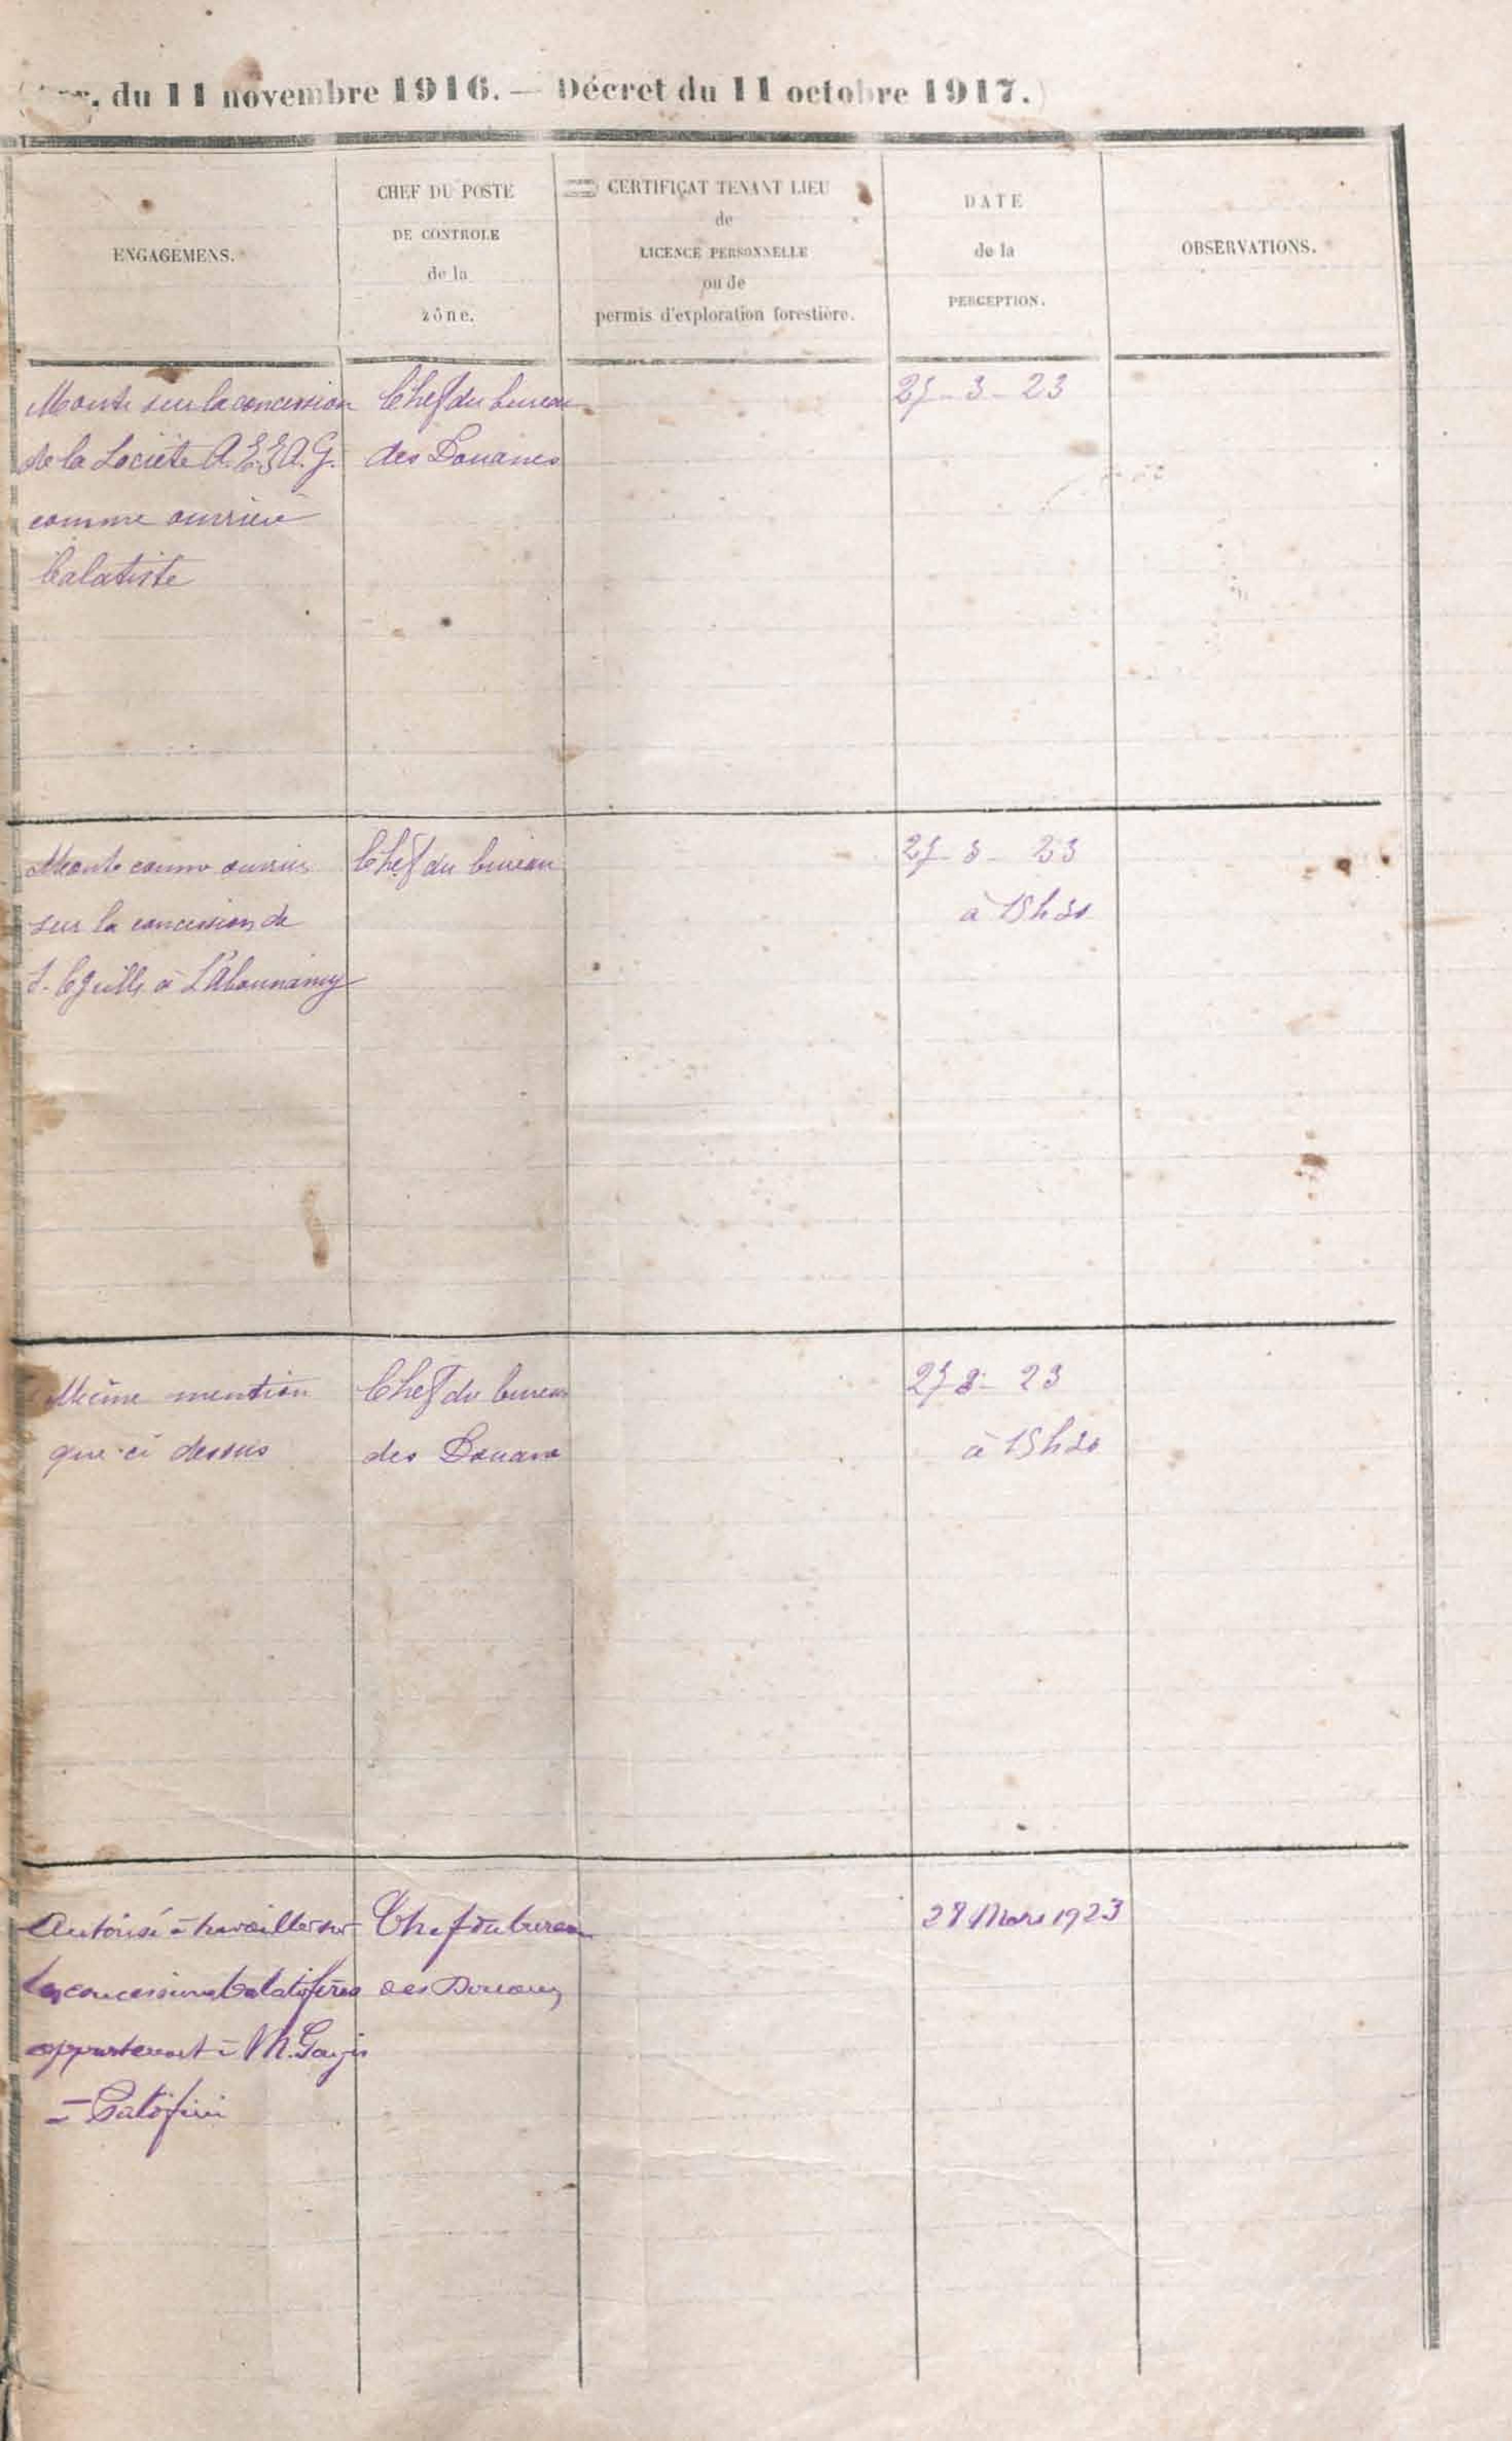 du 11 novembre 1916. — Décret du 11 octobre 1917.)
ENGAGEMENS.
CHEF DU POSTE
DE CONTROLE
de la
zône.
CERTIFICAT TENANT LIEU
de
LICENCE PERSONNELLE
ou de
permis d'exploration forestière.
DATE
de la
PERCEPTION.
OBSERVATIONS.
Monte sur la concession
de la Société
comme ouvrier
balatiste
Chef du bureau
des Douanes
3 - 23
Monte comme ouvrier
sur la concession de
à
Chef du bureau
23
à 15h
Même mention
que ci dessus
Chef du bureau
des Douane
23
à 15h
Autorisé à travailler sur
les concessions balatifères
appartenant à M.
à
Chef du bureau
des Douanes
28 Mars 1923